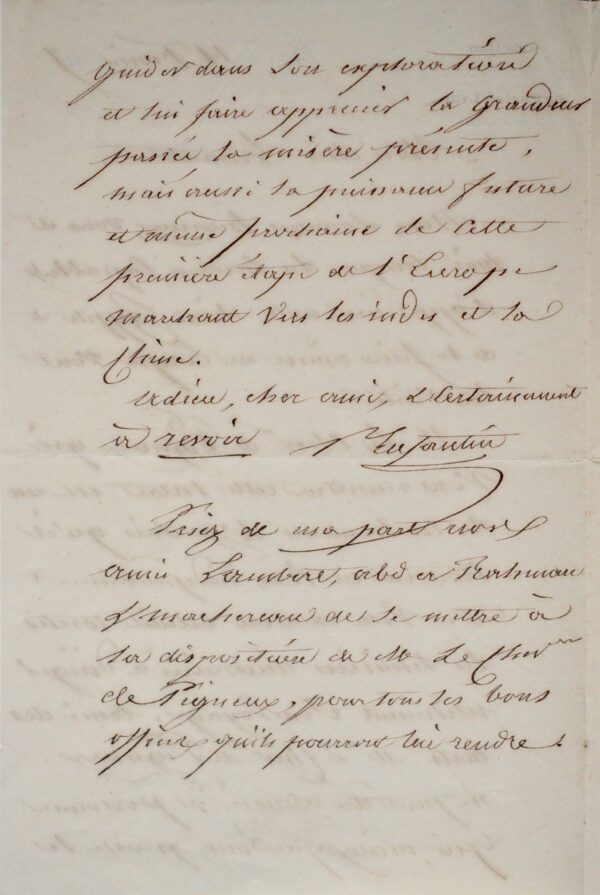 guider dans son exploration
et lui faire apprécier la grandeur
passée la misère présente,
mais aussi la puissance future
et même prochaine de cette
première étape de l'Europe
marchant vers les indes et la
Chine.
adieu, cher ami, & certainement
à revoir P Enfantin
Priez de ma part nos
amis Lambert, abd er Rahman
& Machereau de se mettre à
la disposition de M. Le Chev<sup>er</sup>
de Pigneux, pour tous les bons
offices qu'ils pourront lui rendre.